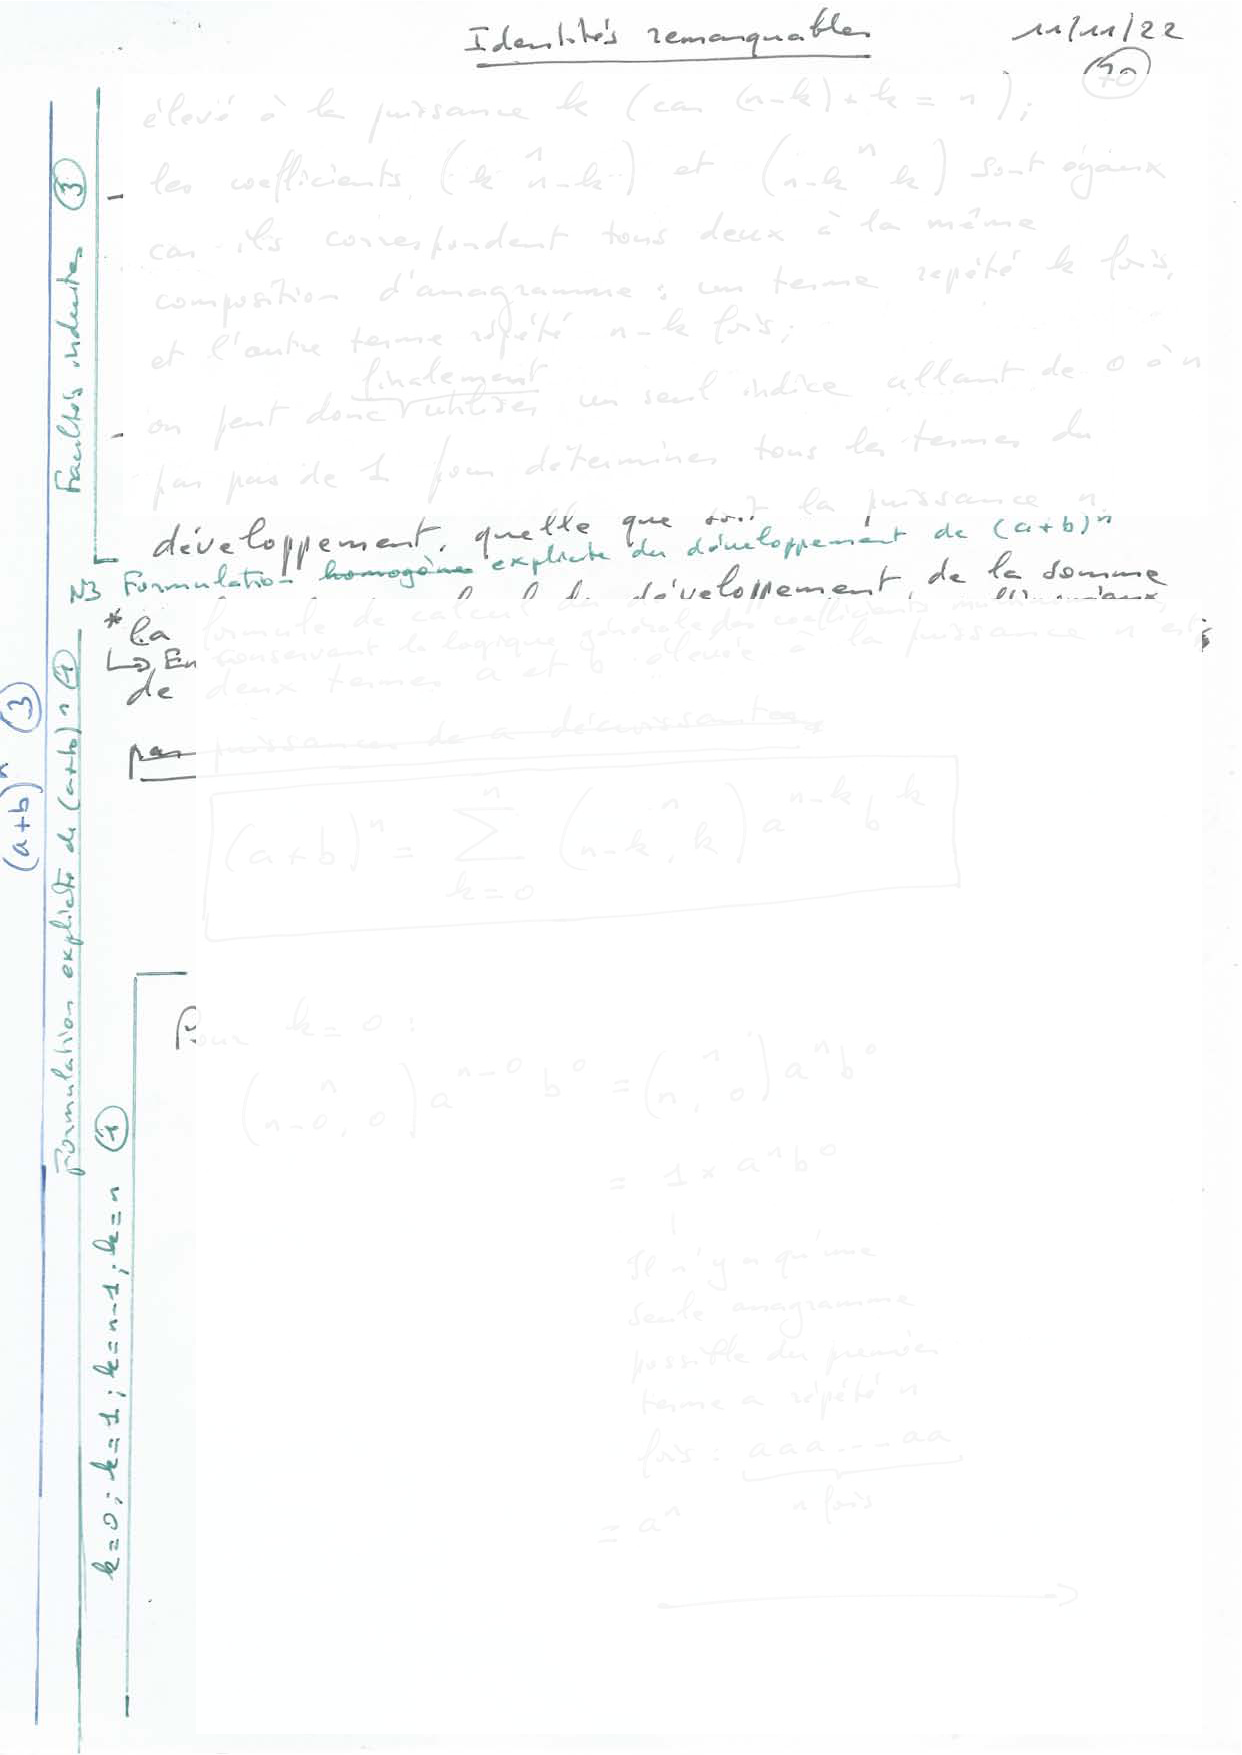 Identités remarquables 11/11/22
70
élevé à la puissance k (car (n-k)+k = n);
les coefficients (k, n-k) et (n-k, k) sont égaux
car ils correspondent tous deux à la même
composition d'anagramme : un terme répété k fois,
et l'autre terme répété n-k fois;
finalement
on peut donc utiliser un seul indice allant de 0 à n
par pas de 1 pour déterminer tous les termes du
développement, quelle que soit la puissance n.
N3 Formulation homogène explicite du développement de (a+b)^n
* La formule de calcul du développement de la somme
↳ En conservant la logique générale des coefficients multinomiaux
de deux termes a et b élevée à la puissance n est
par puissances de a décroissantes
(a+b)^n = Σ_{k=0}^{n} (n ; n-k, k) a^{n-k} b^k
Pour k=0 :
(n ; n-0, 0) a^{n-0} b^0 = (n ; n, 0) a^n b^0
= 1 × a^n b^0
Il n'y a qu'une
seule anagramme
possible du premier
terme a répété n
fois : aaa...aa
n fois
= a^n
Facultés induites 3
(a+b)^n 3
Formulation explicite de (a+b)^n 1
k=0; k=1; k=n-1; k=n 1